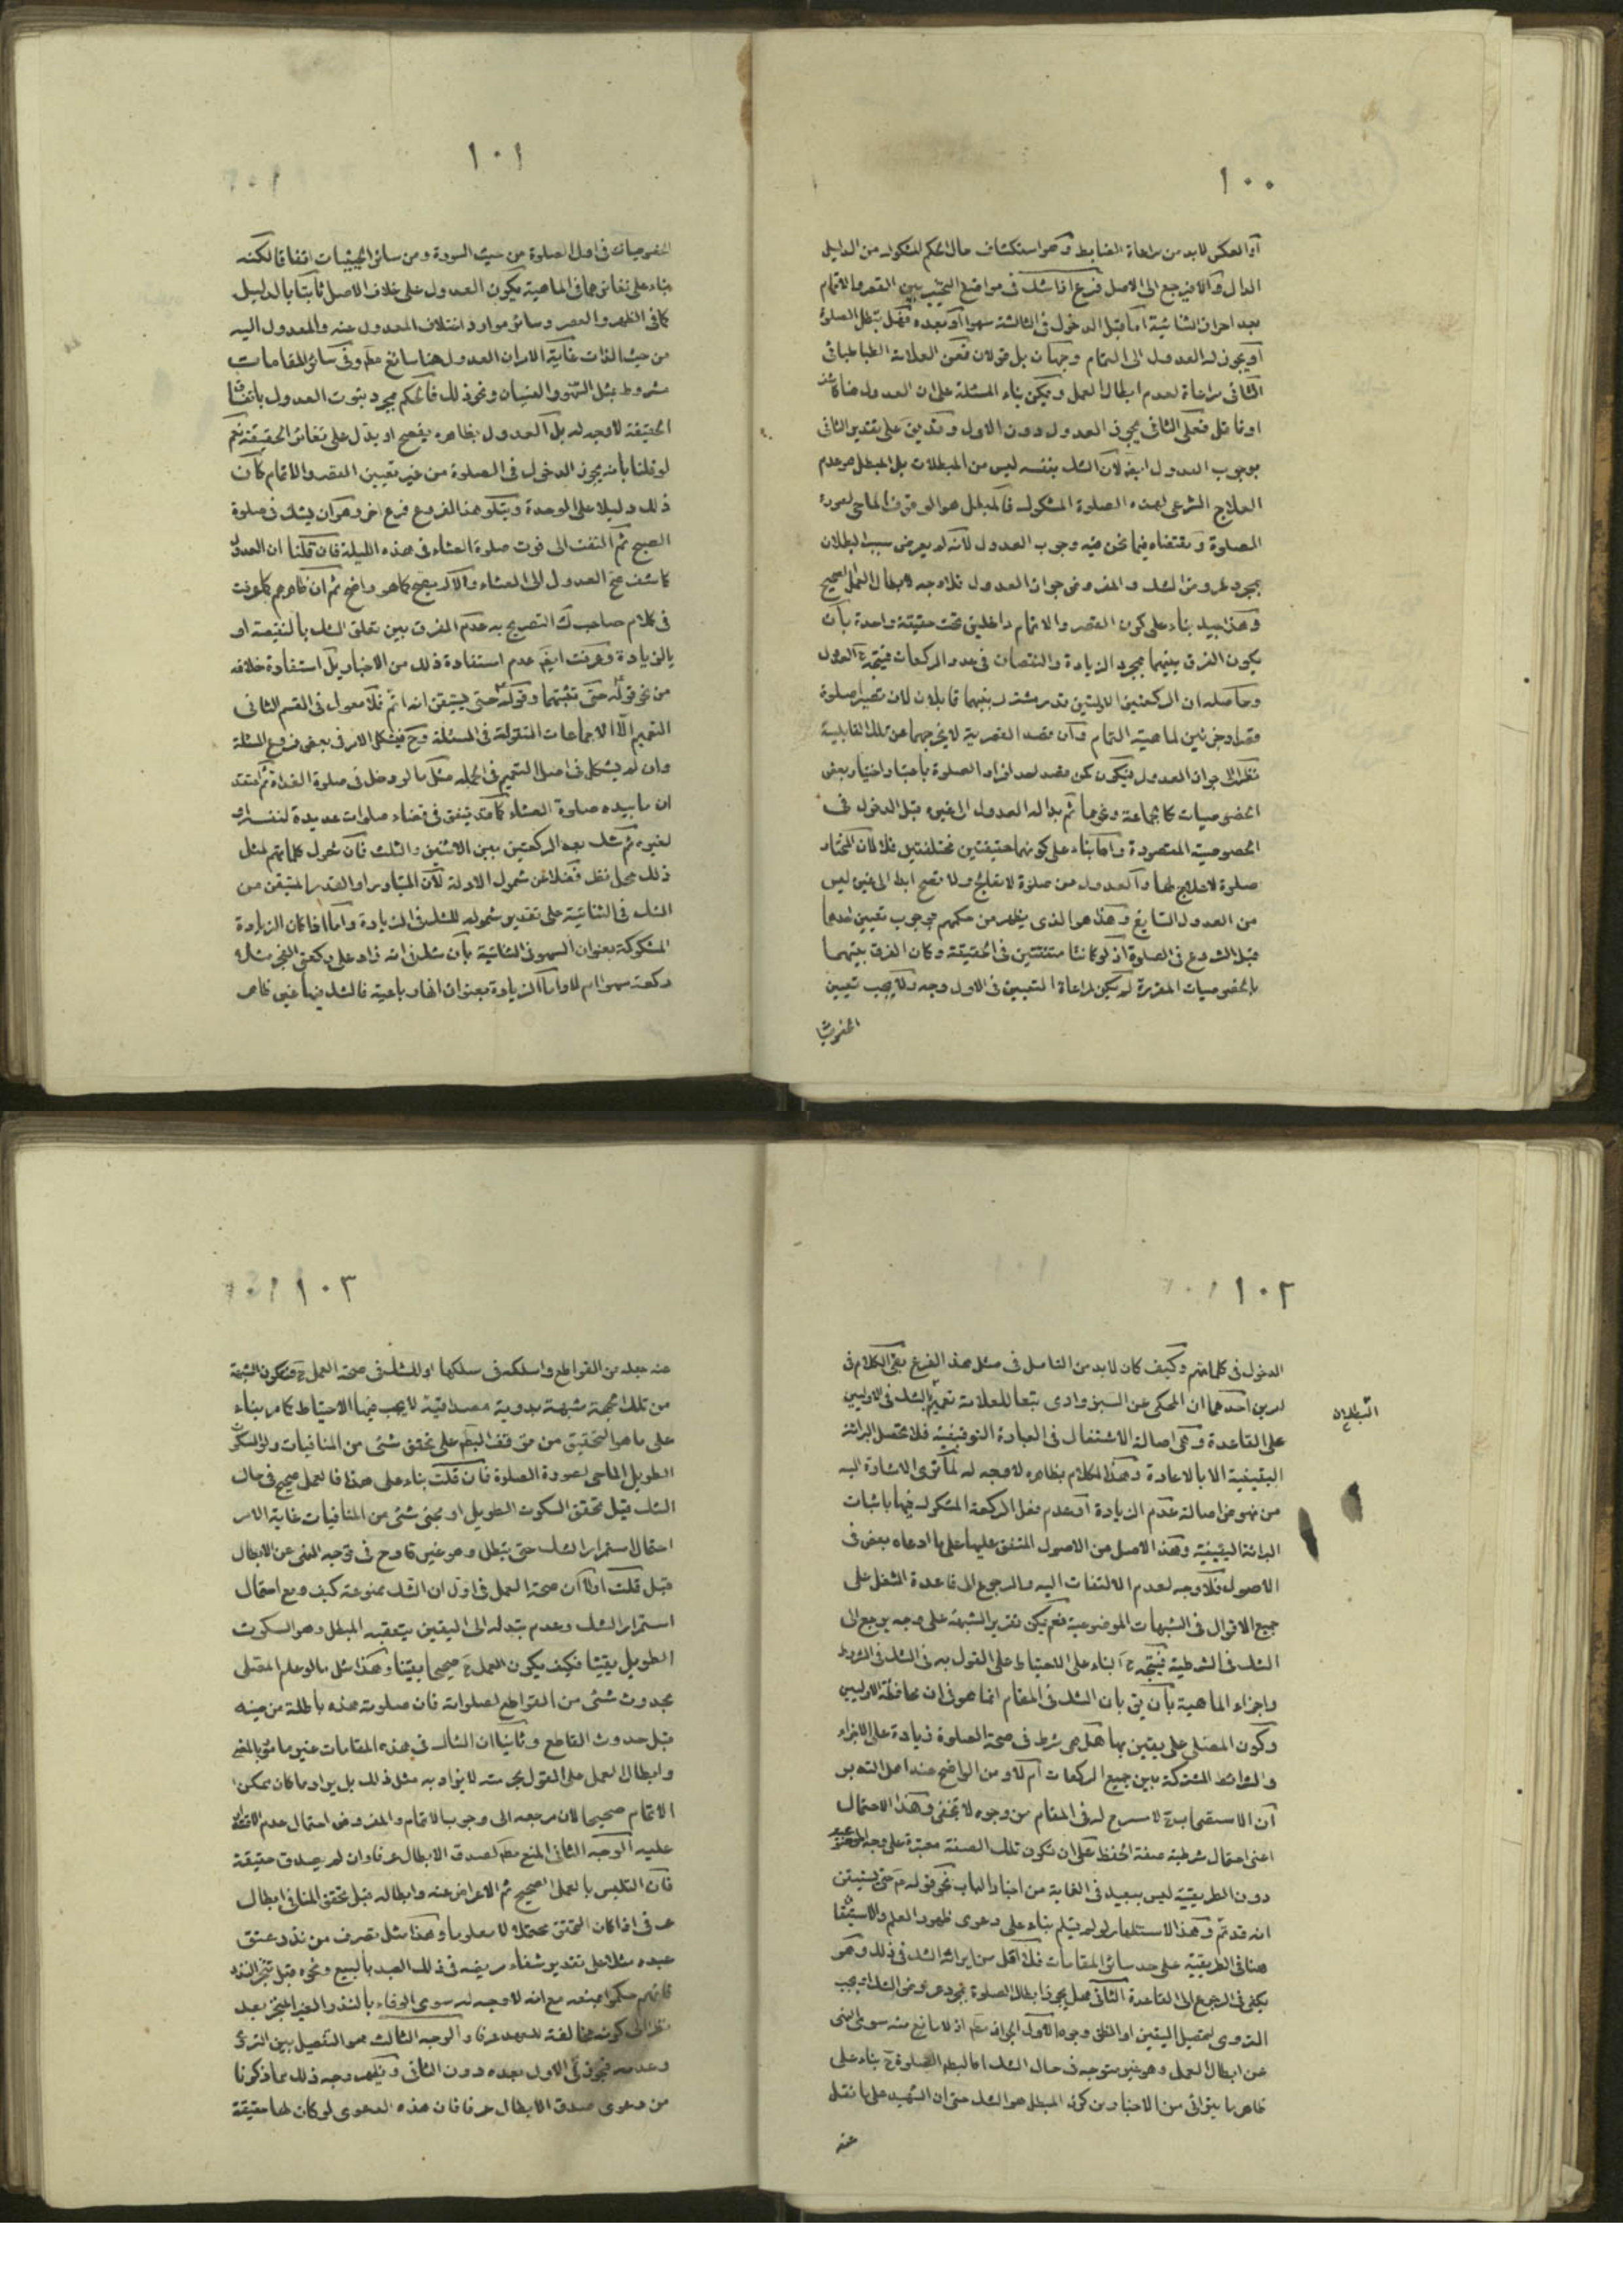 ١٠٠
أو العكس لابد من مراعاة الضابط وهو استكشاف حال الحكم المشكوك من الدليل
الدال والا فيرجع الى الاصل فرع اذا شك في مواضع التخيير بين القصر والاتمام
بعد احراز الثنائية اما قبل الدخول في الثالثة سهوا او بعده فهل تبطل الصلوة
او يجوز له العدول الى التمام وجهان بل قولان فعن العلامة الطباطبائي
الثاني مراعاة لعدم ابطال العمل ويمكن بناء المسئلة على ان العدول هنا كاشف
او ناقل فعلى الثاني يجوز العدول دون الاول وقد يق على تقدير الثاني
بوجوب العدول ايضا لان الشك بنفسه ليس من المبطلات بل المبطل هو عدم
العلاج الشرعي لهذه الصلوة المشكوك فالمبطل هو الوقوف الماحي لصورة
الصلوة ومقتضاه فيما نحن فيه وجوب العدول لانه لم يعرض سبب البطلان
بمجرد عروض الشك والمفروض جواز العدول فلا وجه لابطال العمل الصحيح
وهذا جيد بناء على كون القصر والاتمام داخلين تحت حقيقة واحدة بان
يكون الفرق بينهما بمجرد الزيادة والنقصان في عدد الركعات فيتجه ح العدول
وحاصله ان الركعتين الاوليتين قدر مشترك بينهما قابلان لان تصيرا صلوة
قصرا وجزئين لماهية التمام وان قصد القصرية لا يخرجهما عن تلك القابلية
نظرا الى جواز العدول فيكون كمن قصد احد افراد الصلوة باعتبار اختيار بعض
الخصوصيات كالجماعة وغيرها ثم بدا له العدول الى غيره قبل الدخول في
الخصوصية المقصودة واما بناء على كونهما حقيقتين مختلفتين فلا لان المختار
صلوة لا علاج لها والعدول من صلوة لا تعالج ولا تصح ابدا الى غير ليس
من العدول السايغ وهذا هو الذي يظهر من حكمهم بوجوب تعيين احدهما
قبل الشروع في الصلوة اذ لو كانتا متفقتين في الحقيقة وكان الفرق بينهما
بالخصوصيات المفردة لم يكن لمراعاة التعيين في الاول وجه ولا يجب تعيين
الخصوصيا
١٠١
الخصوصيات في اول الصلوة من حيث السورة ومن سائر الحيثيات اتفاقا لكنه
بناء على تغايرهما في الماهية يكون العدول على خلاف الاصل ثابتا بالدليل
كما في الظهر والعصر وسائر موارد اختلاف المعدول عنه والمعدول اليه
من حيث الذات غاية الامر ان العدول هنا سائغ مطم وفي سائر المقامات
مشروط بمثل السهو والنسيان ونحو ذلك فالحكم بمجرد ثبوت العدول باتفاق
الحقيقة لا وجه له بل العدول بظاهره يفصح او يدل على تغاير الحقيقة نعم
لو قلنا بانه يجوز الدخول في الصلوة من غير تعيين القصر والاتمام كان
ذلك دليلا على الوحدة ويتلو هذا الفرع فرع اخر وهو ان يشك في صلوة
الصبح ثم التفت الى فوت صلوة العشاء في هذه الليلة فان قلنا ان العدول
كاشف صح العدول الى العشاء والا لم يصح كما هو واضح ثم ان ظاهرهم كما عرفت
في كلام صاحب ك التصريح به عدم الفرق بين تعلق الشك بالنقيصة او
بالزيادة وعرفت ايضا عدم استفادة ذلك من الاخبار بل استفادة خلافه
من نحو قوله حتى تثبتهما وقوله حتى يستيقن انه اتم فلا معول في القسم الثاني
التعميم الا الاجماعات المنقولة في المسئلة وح فيشكل الامر في بعض فروع المسئلة
وان لم يشكل في اصل التعميم في الجملة مثل ما لو دخل في صلوة الغداة ثم اعتقد
ان ما بيده صلوة العشاء كما قد يتفق في قضاء صلوات عديدة لنفسه او
لغيره ثم شك بعد الركعتين بين الاثنتين والثلث فان شمول كلماتهم لمثل
ذلك محل نظر فضلا عن شمول الادلة لان المتبادر او القدر المتيقن من
الشك في الثنائية على تقدير شموله للشك في الزيادة واما اذا كان الزيادة
المشكوكة بعنوان السهو في الثنائية بان شك في انه زاد على ركعتي الفجر مثلا
ركعة سهوا ام لا واما الزيادة بعنوان انها رباعية فالشك فيها غير ظاهر
١٠٢
الدخول في كلماتهم وكيف كان لابد من التامل في مثل هذا الفرع بقى الكلام في
امرين احدهما ان المحكى عن السبزوارى تبعا للعلامة تعميم البطلان بالشك في الاوليين
على القاعدة وهى اصالة الاشتغال في العبادة التوقيفية فلا تحصل البرائة
اليقينية الا بالاعادة وهذا الكلام بظاهره لا وجه له لما تقرى الاشارة اليه
من نهوض اصالة عدم الزيادة او عدم فعل الركعة المشكوك فيها باثبات
البرائة اليقينية وهذا الاصل من الاصول المتفق عليها على ما ادعاه بعض في
الاصول فلا وجه لعدم الالتفات اليه والرجوع الى قاعدة الشغل على
جميع الاقوال في الشبهات الموضوعية نعم يمكن تقرير الشبهة على وجه يرجع الى
الشك في الشرطية فيتجه ح البناء على الاحتياط على القول به في الشك في الشروط
واجزاء الماهية بان يق بان الشك في المقام انما هو في ان محافظة الاوليين
وكون المصلى على يقين بها هل هى شرط في صحة الصلوة زيادة على الاجزاء
والشرائط المشتركة بين جميع الركعات ام لا ومن الواضح عند اهل التدبر
ان الاستصحاب ح لا مسرح له في المقام من وجوه لا تخفى وهذا الاحتمال
اعنى احتمال شرطية صفة الحفظ على ان تكون تلك الصفة معتبرة على وجه الموضوعية
دون الطريقية ليس ببعيد في الغاية من اخبار الباب نحو قوله ع حتى يستيقن
انه قد تم وهذا الاستظهار لو لم يتم بناء على دعوى ظهور العلم والاستيقان
هنا في الطريقية على حد سائر المقامات فلا اقل من ايراثه الشك في ذلك وهو
يكفى في الرجوع الى القاعدة الثاني هل يجوز ابطال الصلوة بمجرد عروض الشك او يجب
التروى لتحصيل اليقين او الظن وجوه الاول الجواز مطم اذ لا مانع منه سوى النهى
عن ابطال العمل وهو غير متوجه في حال الشك اما لبطلان الصلوة ح بناء على
ظاهر ما يتراءى من الاخبار من كون المبطل هو الشك حتى ان الشهيد على ما نقل
عنه
١٠٣
عنه جعله من القواطع واسلكه في سلكها او للشك في صحة العمل ح فتكون الشبهة
من تلك الجهة شبهة بدوية مصداقية لا يجب فيها الاحتياط كما مر بناء
على ما هو التحقيق من توقف البطم على تحقق شئ من المنافيات ولو السكوت
الطويل الماحى لصورة الصلوة فان قلت بناء على هذا فالعمل صحيح في حال
الشك قبل تحقق السكوت الطويل او مجئ شئ من المنافيات غاية الامر
احتمال استمرار الشك حتى يبطل وهو غير قادح في توجه النهى عن الابطال
قبل قلت اولا ان صحة العمل في اول ان الشك ممنوعة كيف ومع احتمال
استمرار الشك وعدم تبدله الى اليقين يتعقبه المبطل وهو السكوت
الطويل يقينا فكيف يكون العمل ح صحيحا يقينا وهذا مثل ما لو علم المصلى
بحدوث شئ من القواطع لصلواته فان صلوته هذه باطلة من حينه
قبل حدوث القاطع وثانيا ان الشاك في هذه المقامات غير مامور بالمضى
وابطال العمل على القول بحرمته لا يراد به مثل ذلك بل يراد ما كان ممكن
الاتمام صحيحا لان مرجعه الى وجوب الاتمام والمفروض احتمال عدم الاتمام
عليه الوجه الثاني المنع مطم لصدق الابطال عرفا وان لم يصدق حقيقة
فان التلبس بالعمل الصحيح ثم الاعراض عنه وابطاله قبل تحقق المنافى ابطال
عرفى اذا كان التحقق محتملا لا معلوما وهذا مثل تصرف من نذر عتق
عبده مثلا على تقدير شفاء مريضه في ذلك العبد بالبيع ونحوه قبل تنجز النذر
فانهم حكموا بمنعه مع انه لا وجه له سوى الوفاء بالنذر الغير المنجز بعد
نظرا الى كونه مخالفة للعهد عرفا والوجه الثالث هو التفصيل بين التروى
وعدمه فيجوز في الاول بعده دون الثاني ويظهر وجه ذلك مما ذكرنا
من دعوى صدق الابطال عرفا فان هذه الدعوى لو كان لها حقيقة